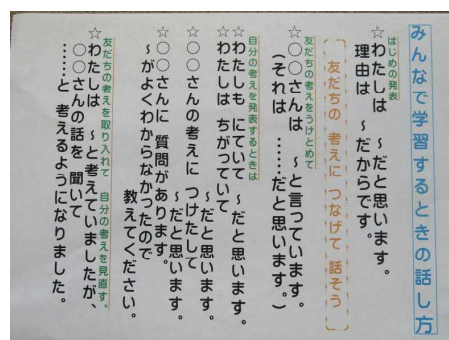 みんなで学習するときの話し方
はじめの発表
☆わたしは ~だと思います。
理由は ~だからです。
友だちの 考えに つなげて 話そう
友だちの考えをうけとめて
☆○○さんは ~と言っています。
(それは ……だと思います。)
自分の考えを発表するときは
☆わたしも にていて ~だと思います。
☆わたしは ちがっていて
~だと思います。
☆○○さんの考えに つけたして
~だと思います。
☆○○さんに 質問があります。
~がよくわからなかったので
教えてください。
友だちの考えを取り入れて 自分の考えを見直す。
☆わたしは ~と考えていましたが、
○○さんの話を 聞いて
……と 考えるようになりました。